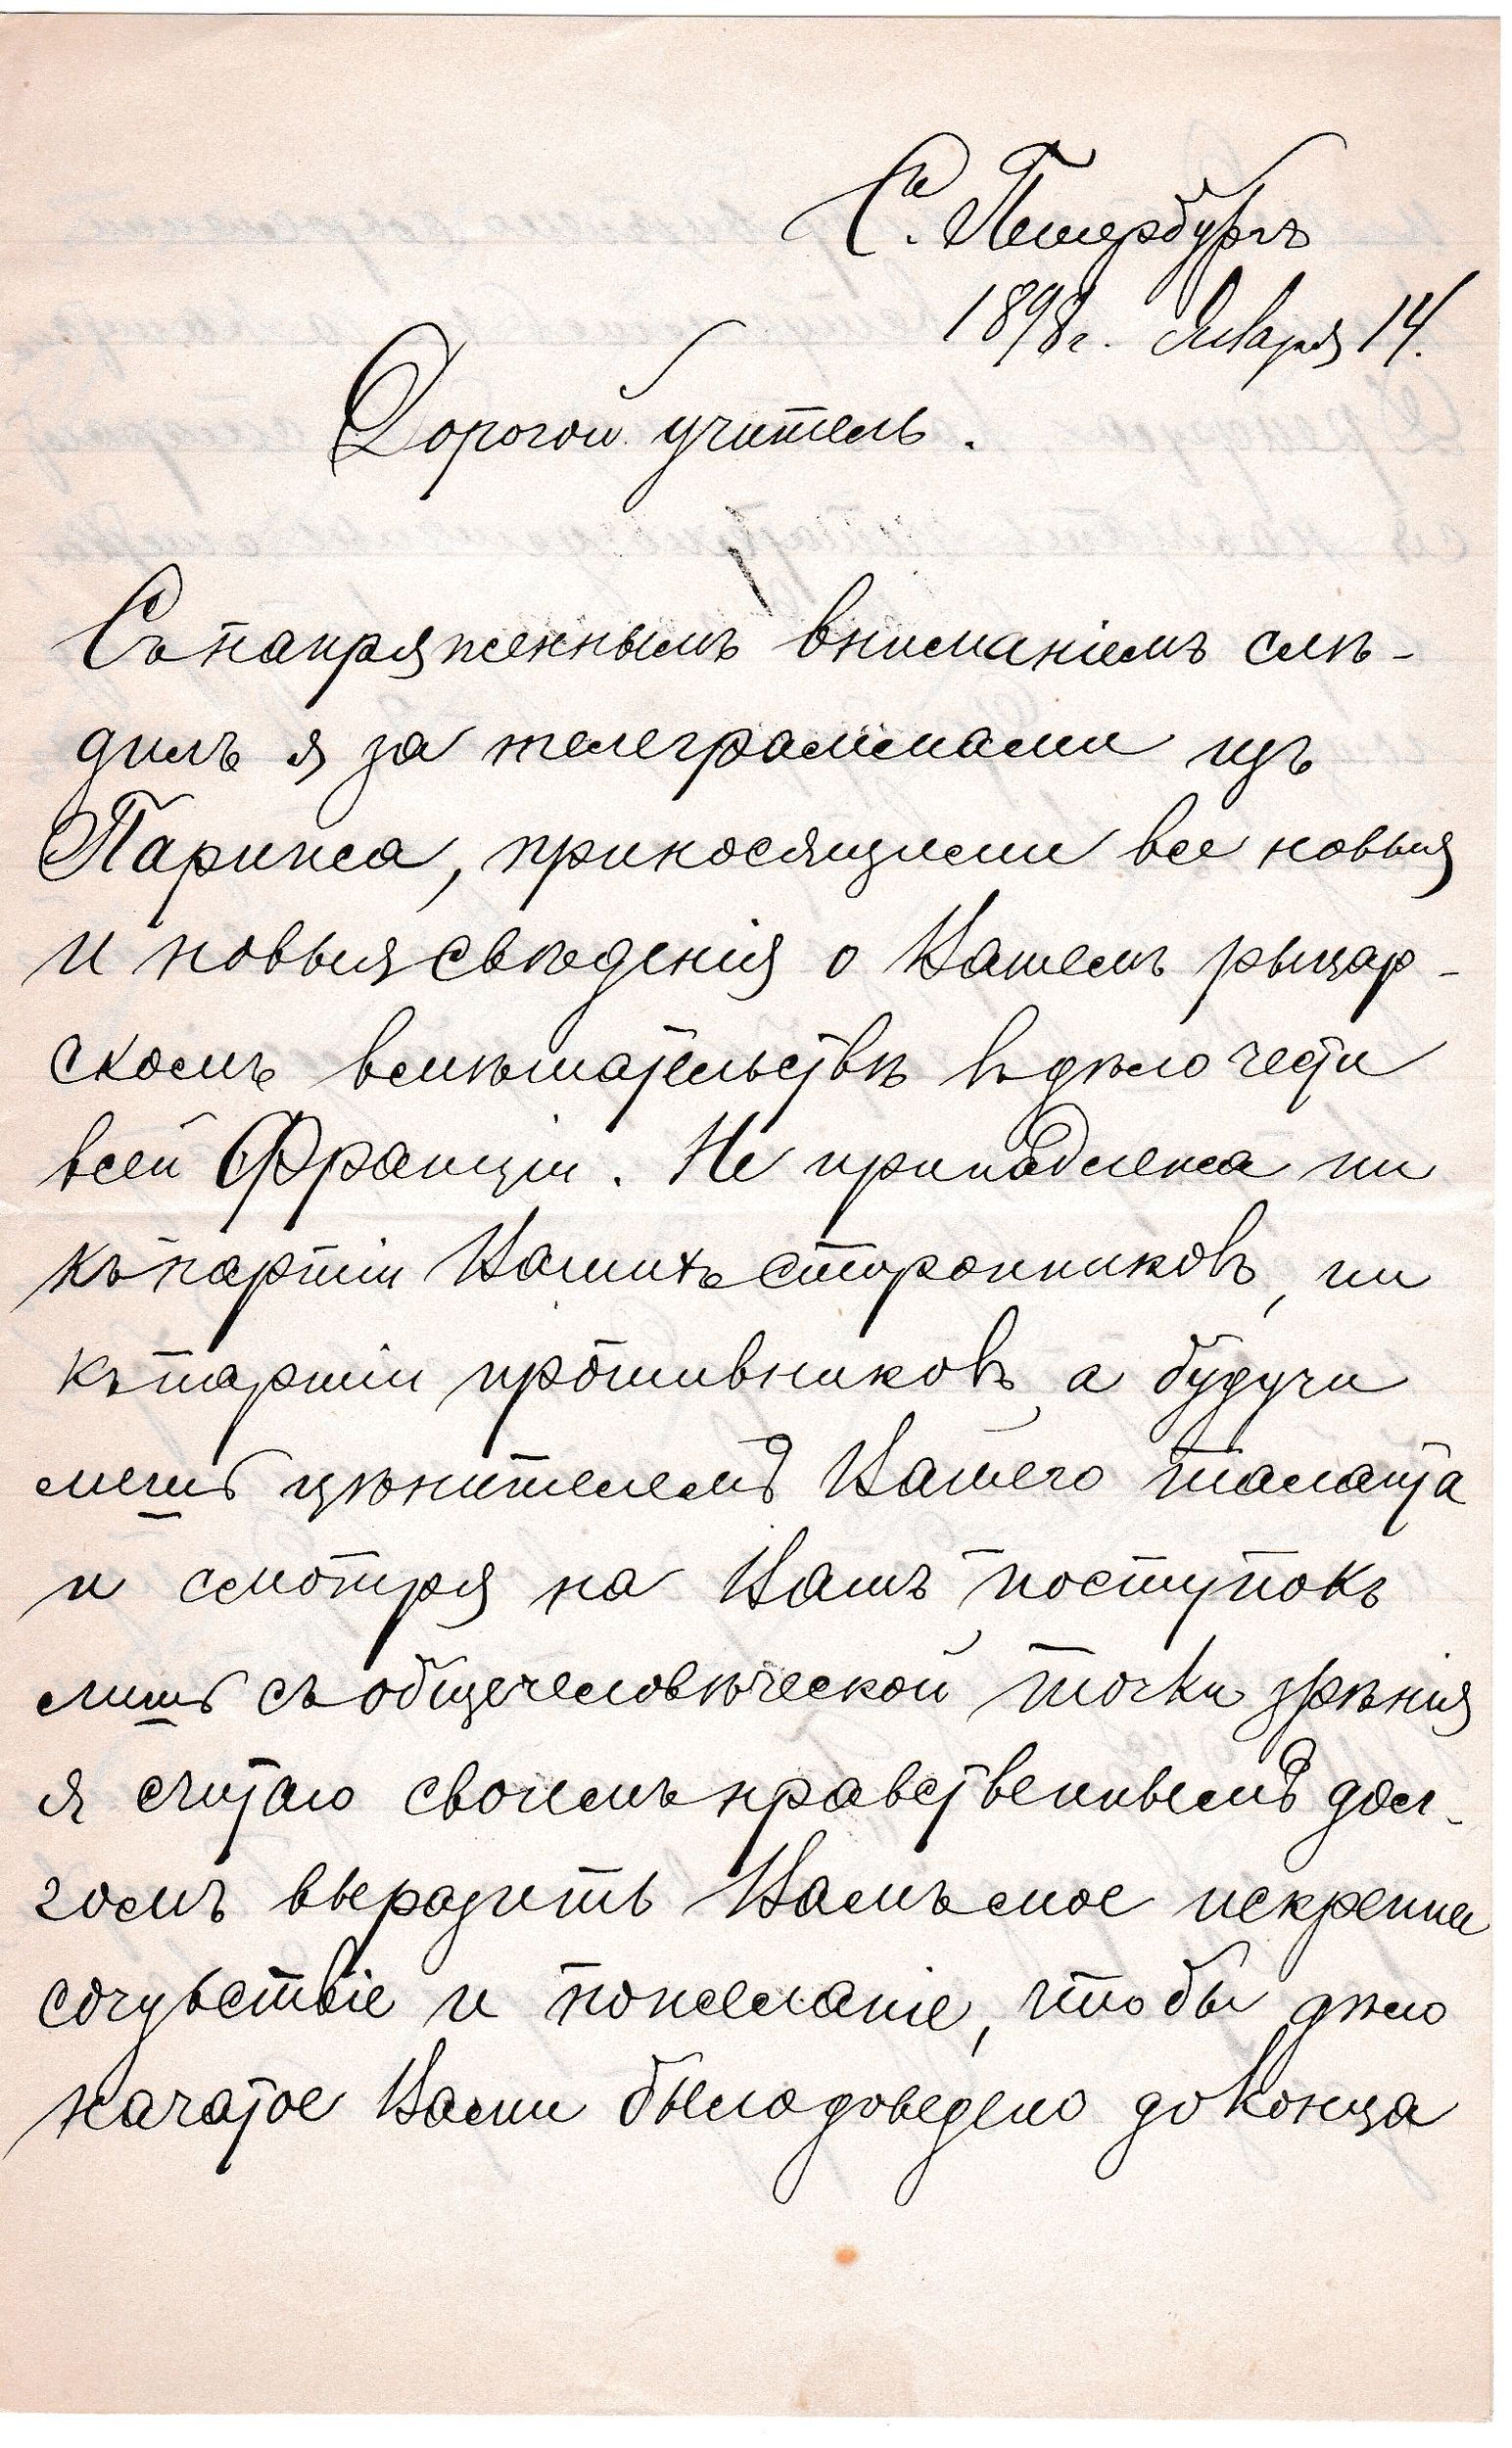 С. Петербургъ
1898 г. Января 14.
Дорогой учитель.
Съ напряженнымъ вниманіемъ слѣ-
дилъ я за телеграммами изъ
Парижа, приносящими все новыя
и новыя свѣдѣнія о Вашемъ рыцар-
скомъ вмѣшательствѣ въ дѣло чести
всей Франціи. Не принадлежа ни
къ партіи Вашихъ сторонниковъ, ни
къ партіи противниковъ, а будучи
лишь цѣнителемъ Вашего таланта
и смотря на Вашъ поступокъ
лишь съ общечеловѣческой точки зрѣнія
я считаю своимъ нравственнымъ дол-
гомъ выразить Вамъ мое искреннее
сочувствіе и пожеланіе, чтобы дѣло
начатое Вами было доведено до конца